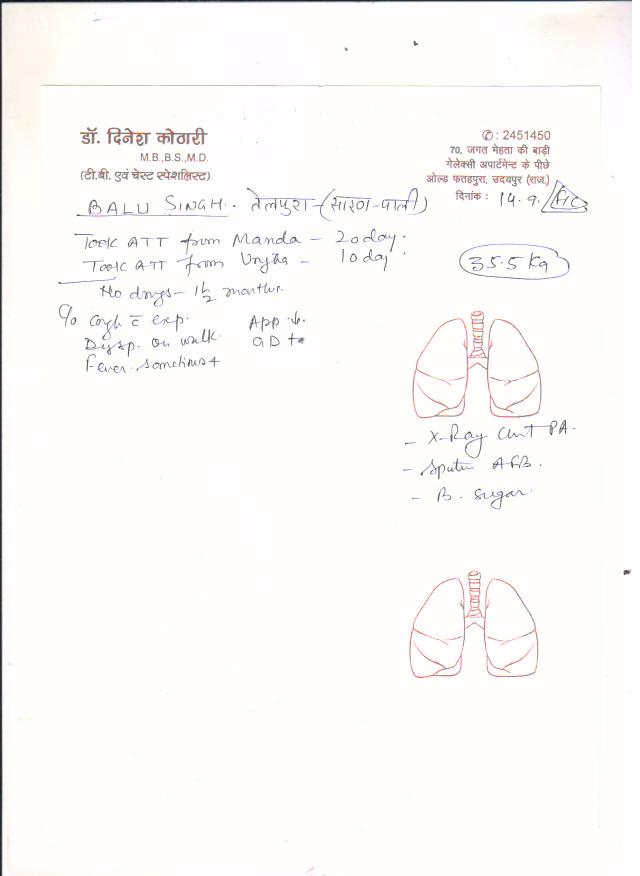 डॉ. दिनेश कोठारी
M.B.,B.S.,M.D.
(टी.बी. एवं चेस्ट स्पेशलिस्ट)
✆: 2451450
70, जगत मेहता की बाड़ी
गेलेक्सी अपार्टमेन्ट के पीछे
ओल्ड फतहपुरा, उदयपुर (राज.)
दिनांक : 14.9.
BALU SINGH. तेलपुरा-(सारण-पाली)
Took ATT from Manda - 20 day.
Took ATT from - 10 day.
35.5 Kg
No drugs - 1½ months.
C/o Cough c̄ exp. App ↓.
Dysp. on walk.
Fever sometimes +
- X-Ray Chest PA.
- Sputum AFB.
- B. Sugar.